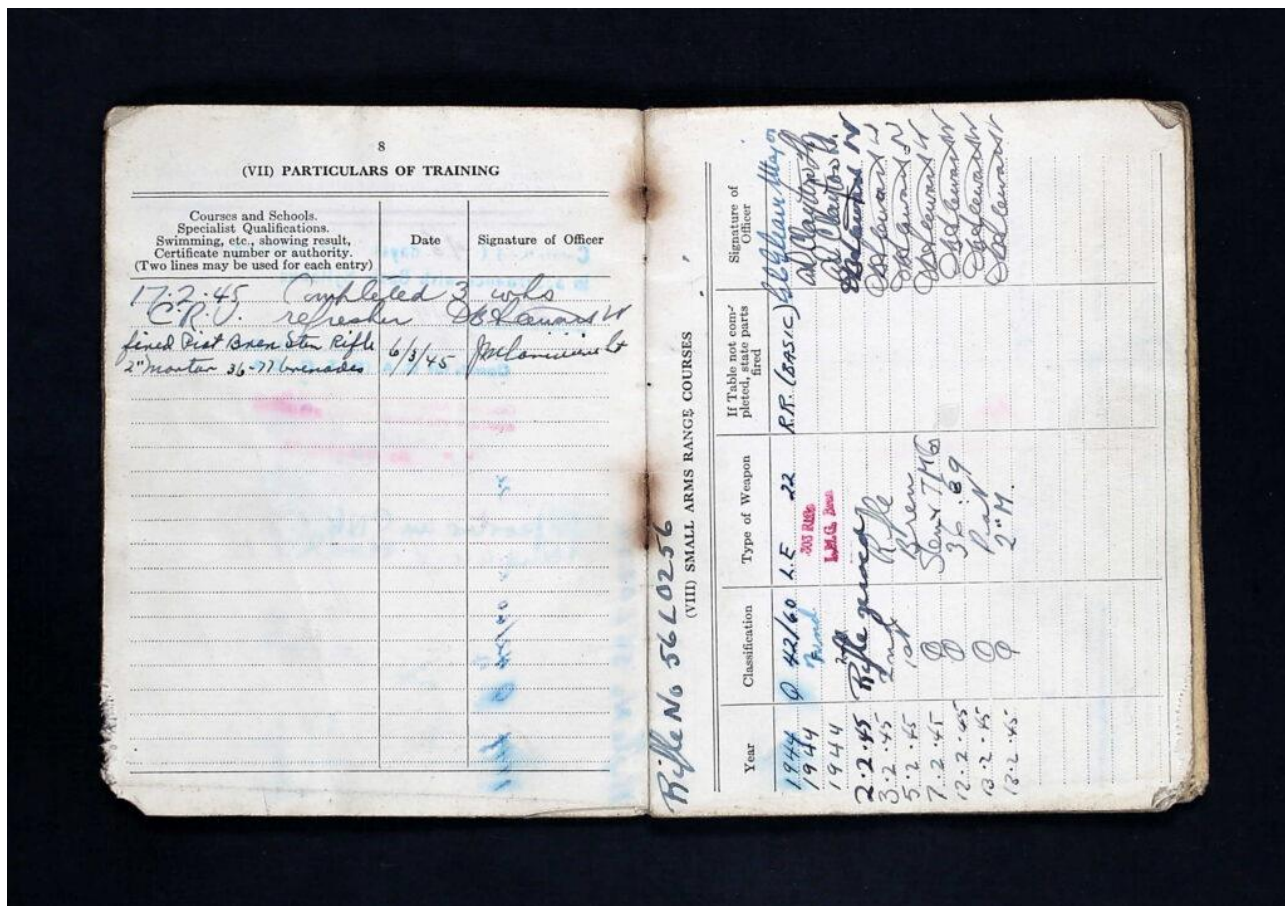 8
(VII) PARTICULARS OF TRAINING
Courses and Schools.
Specialist Qualifications.
Swimming, etc., showing result,
Certificate number or authority.
(Two lines may be used for each entry)
Date
Signature of Officer
17.2.45 Completed 3 wks
refresher
fired Piat Bren Sten Rifle
2" Mortar 36-77 Grenades
6/3/45
Rifle No 56L0256
(VIII) SMALL ARMS RANGE COURSES
Year
Classification
Type of Weapon
If Table not com-
pleted, state parts
fired
Signature of
Officer
1944 Q 42/60 L.E 22 R.R. (BASIC)
1944 303 Rifle
1944 L.M.G. Bren
2.2.45 Rifle zeroed
3.2.45 2nd Rifle
5.2.45 1st Bren
7.2.45 Q Sten
12.2.45 Q 36
13.2.45 Q Piat
13.2.45 Q 2" M.